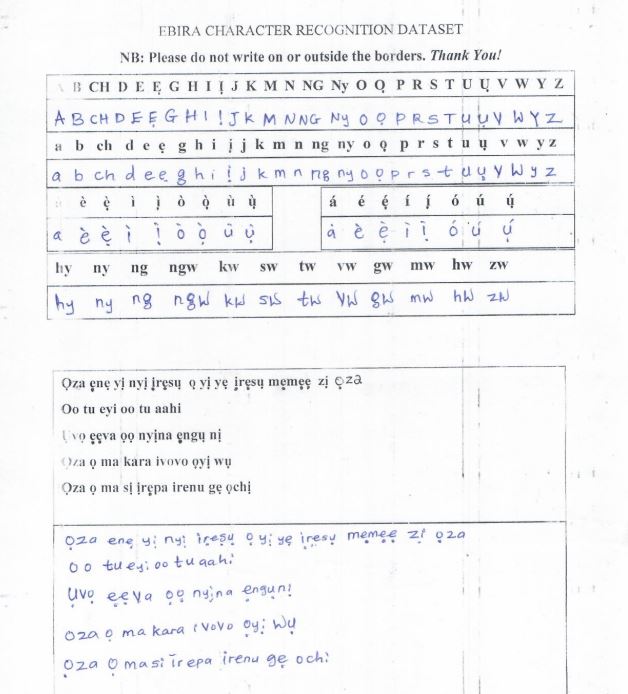 EBIRA CHARACTER RECOGNITION DATASET
NB: Please do not write on or outside the borders. Thank You!
A B CH D E Ẹ G H I Ị J K M N NG Ny O Ọ P R S T U Ụ V W Y Z
A B CH D E Ẹ G H I Ị J K M N NG Ny O Ọ P R S T U Ụ V W Y Z
a b ch d e ẹ g h i ị j k m n ng ny o ọ p r s t u ụ v w y z
a b ch d e ẹ g h i ị j k m n ng ny o ọ p r s t u ụ v w y z
à è ẹ̀ ì ị̀ ò ọ̀ ù ụ̀ á é ẹ́ í ị́ ó ú ụ́
a è ẹ̀ ì ị̀ ò ọ̀ ù ụ̀ à è ẹ̀ ì ị̀ ó ú ụ́
hy ny ng ngw kw sw tw vw gw mw hw zw
hy ny ng ngw kw sw tw vw gw mw hw zw
Ọza ẹnẹ yị nyị ịrẹsụ ọ yị yẹ ịrẹsụ mẹmẹẹ zị ọza
Oo tu eyi oo tu aahi
Ụvọ ẹẹva ọọ nyịna ẹngụ nị
Ọza ọ ma kara ivovo ọyị wụ
Ọza ọ ma sị ịrẹpa irenu gẹ ọchị
Ọza enẹ yị nyị ịrẹsụ ọ yị yẹ ịrẹsụ mẹmẹẹ zị ọza
oo tu eyi oo tu aahi
Ụvọ ẹẹva ọọ nyịna ẹngụnị
Ọza ọ ma kara ivovo ọyị wụ
Ọza Ọ ma sị ịrepa irenu gẹ ochi